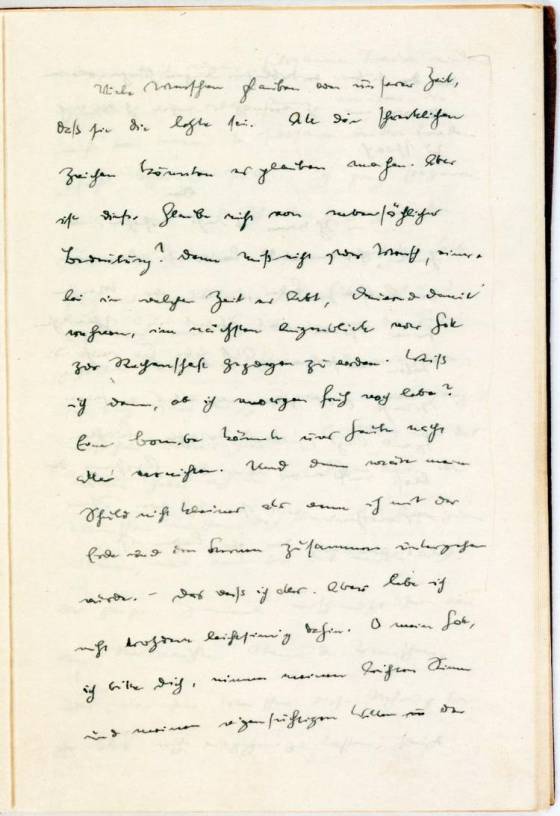 Viele Menschen glauben von unserer Zeit,
daß sie die letzte sei. All die schrecklichen
Zeichen könnten es glauben machen. Aber
ist dieser Glaube nicht von nebensächlicher
Bedeutung? denn muß nicht jeder Mensch, einer-
lei in welcher Zeit er lebt, dauernd damit
rechnen, im nächsten Augenblick von Gott
zur Rechenschaft gezogen zu werden. Weiß
ich denn, ob ich morgen früh noch lebe?
Eine Bombe könnte uns heute nacht
alle vernichten. Und dann wäre meine
Schuld nicht kleiner als wenn ich mit der
Erde und den Sternen zusammen untergehen
würde. – Das weiß ich alles. Aber lebe ich
nicht trotzdem leichtsinnig dahin. O mein Gott,
ich bitte Dich, nimm meinen leichten Sinn
und meinen eigensüchtigen Willen und der